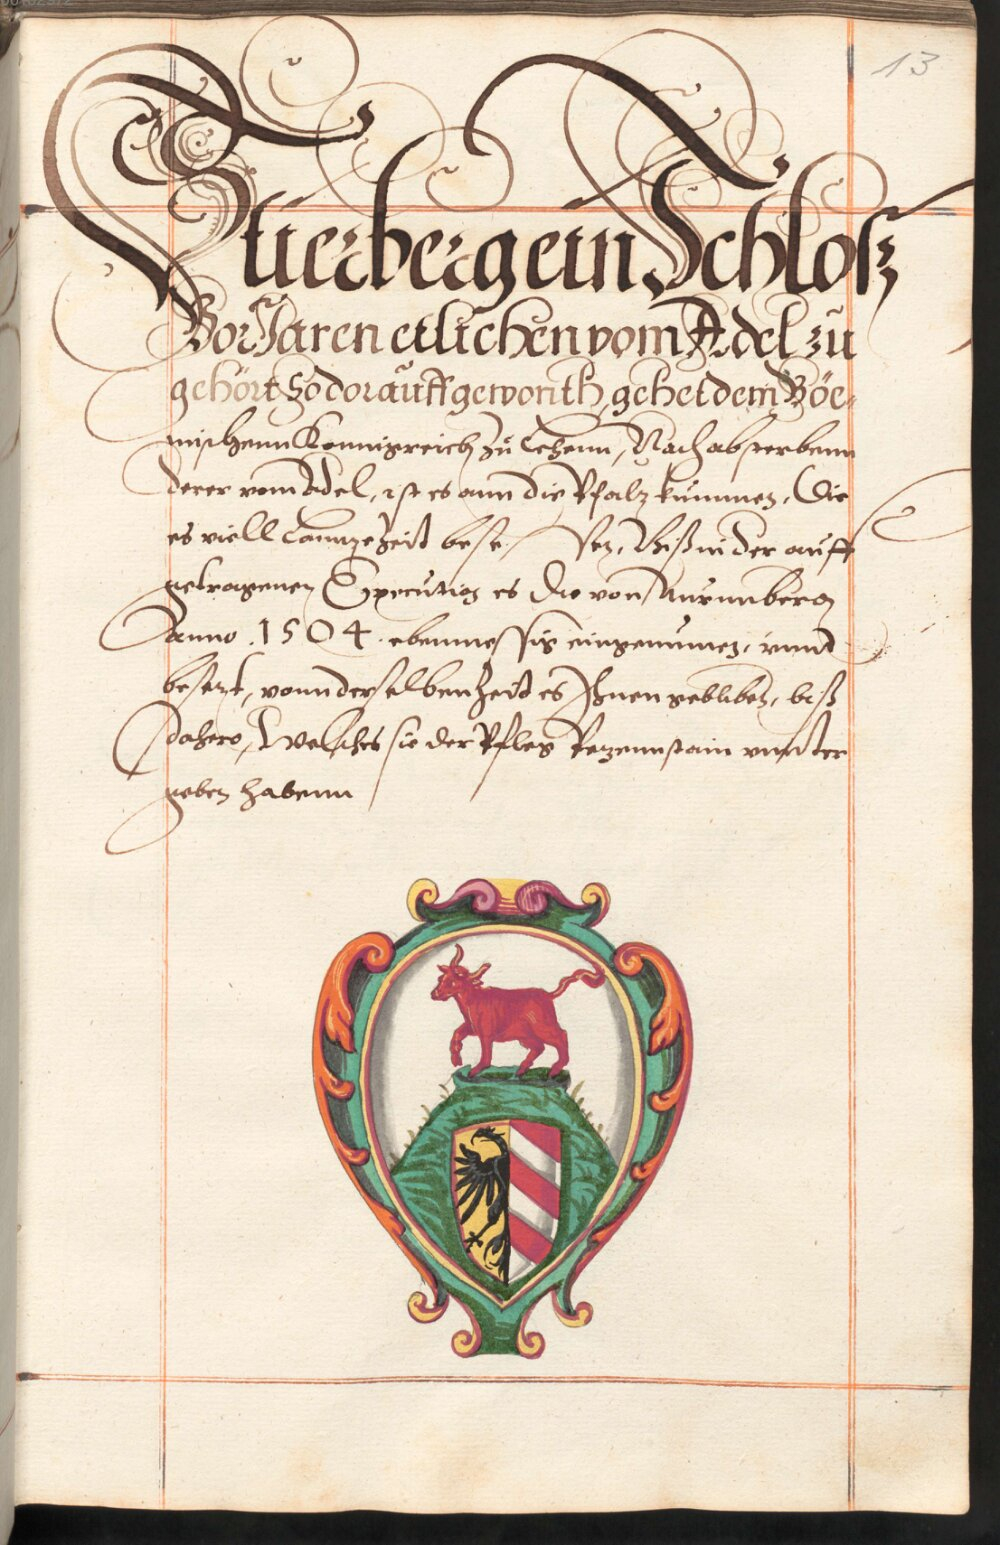 13
Stierberg ein Schloß
Vor Jaren etlichen vom Adel zu
gehört So dorauff gewonth, gehet dem Böe-
mischenn Konnigreich zu Lehenn, Nach absterbenn
derer vom Adel, ist es ann die Pfalz kummen, Die
es viell Lannge Zeit besessen, Biß in der auff
getragenen Execution es die von Nurmberg
Anno .1504. ebenmessig eingenummen, vnnd
besetzt, vonn derselben Zeit es Ihnen geblieben, biß
dahero, Welches sie der Pfleg Petzennstain vnnter
geben habenn